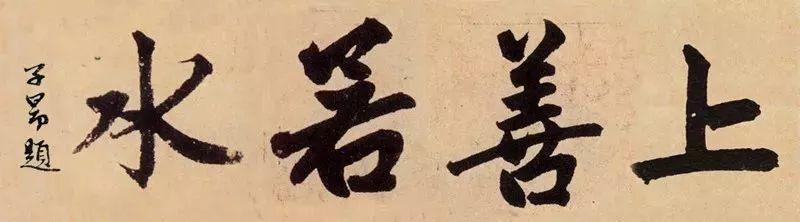 上善若水
子昂題